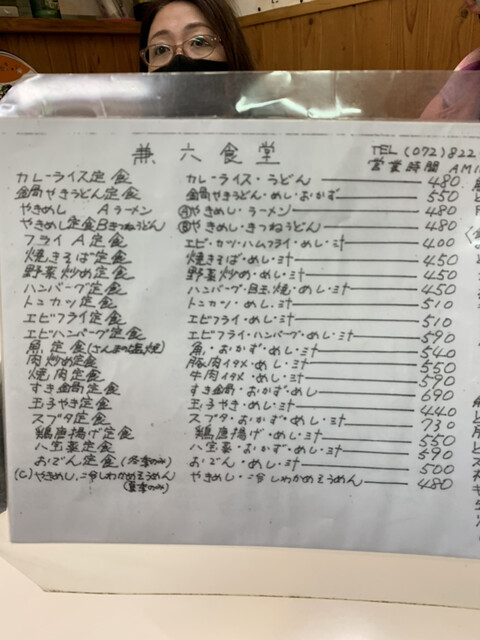 兼六食堂 TEL(072)822
営業時間 AM11
カレーライス定食 カレーライス・うどん 480
鍋やきうどん定食 鍋やきうどん・めし・おかず 550
やきめし Aラーメン Ⓐやきめし・ラーメン 480
やきめし定食Bきつねうどん Ⓑやきめし・きつねうどん 480
フライA定食 エビ・カツ・ハムフライ・めし・汁 400
焼きそば定食 焼きそば・めし・汁 450
野菜炒め定食 野菜炒め・めし・汁 450
ハンバーグ定食 ハンバーグ・目玉焼・めし・汁 450
トンカツ定食 トンカツ・めし・汁 510
エビフライ定食 エビフライ・めし・汁 510
エビハンバーグ定食 エビフライ・ハンバーグ・めし・汁 590
魚定食(さんまの塩焼) 魚・おかず・めし・汁 540
肉炒め定食 豚肉イタメ・めし・汁 550
焼肉定食 牛肉イタメ・めし・汁 590
すき鍋定食 すき鍋・おかず・めし 690
玉子やき定食 玉子やき・めし・汁 440
スブタ定食 スブタ・おかず・めし・汁 730
鶏唐揚げ定食 鶏唐揚げ・めし・汁 550
八宝菜定食 八宝菜・おかず・めし・汁 590
おでん定食(冬季のみ) おでん・めし・汁 500
(C)やきめし、冷しわかめそうめん やきめし・冷しわかめそうめん 480
(夏季のみ)